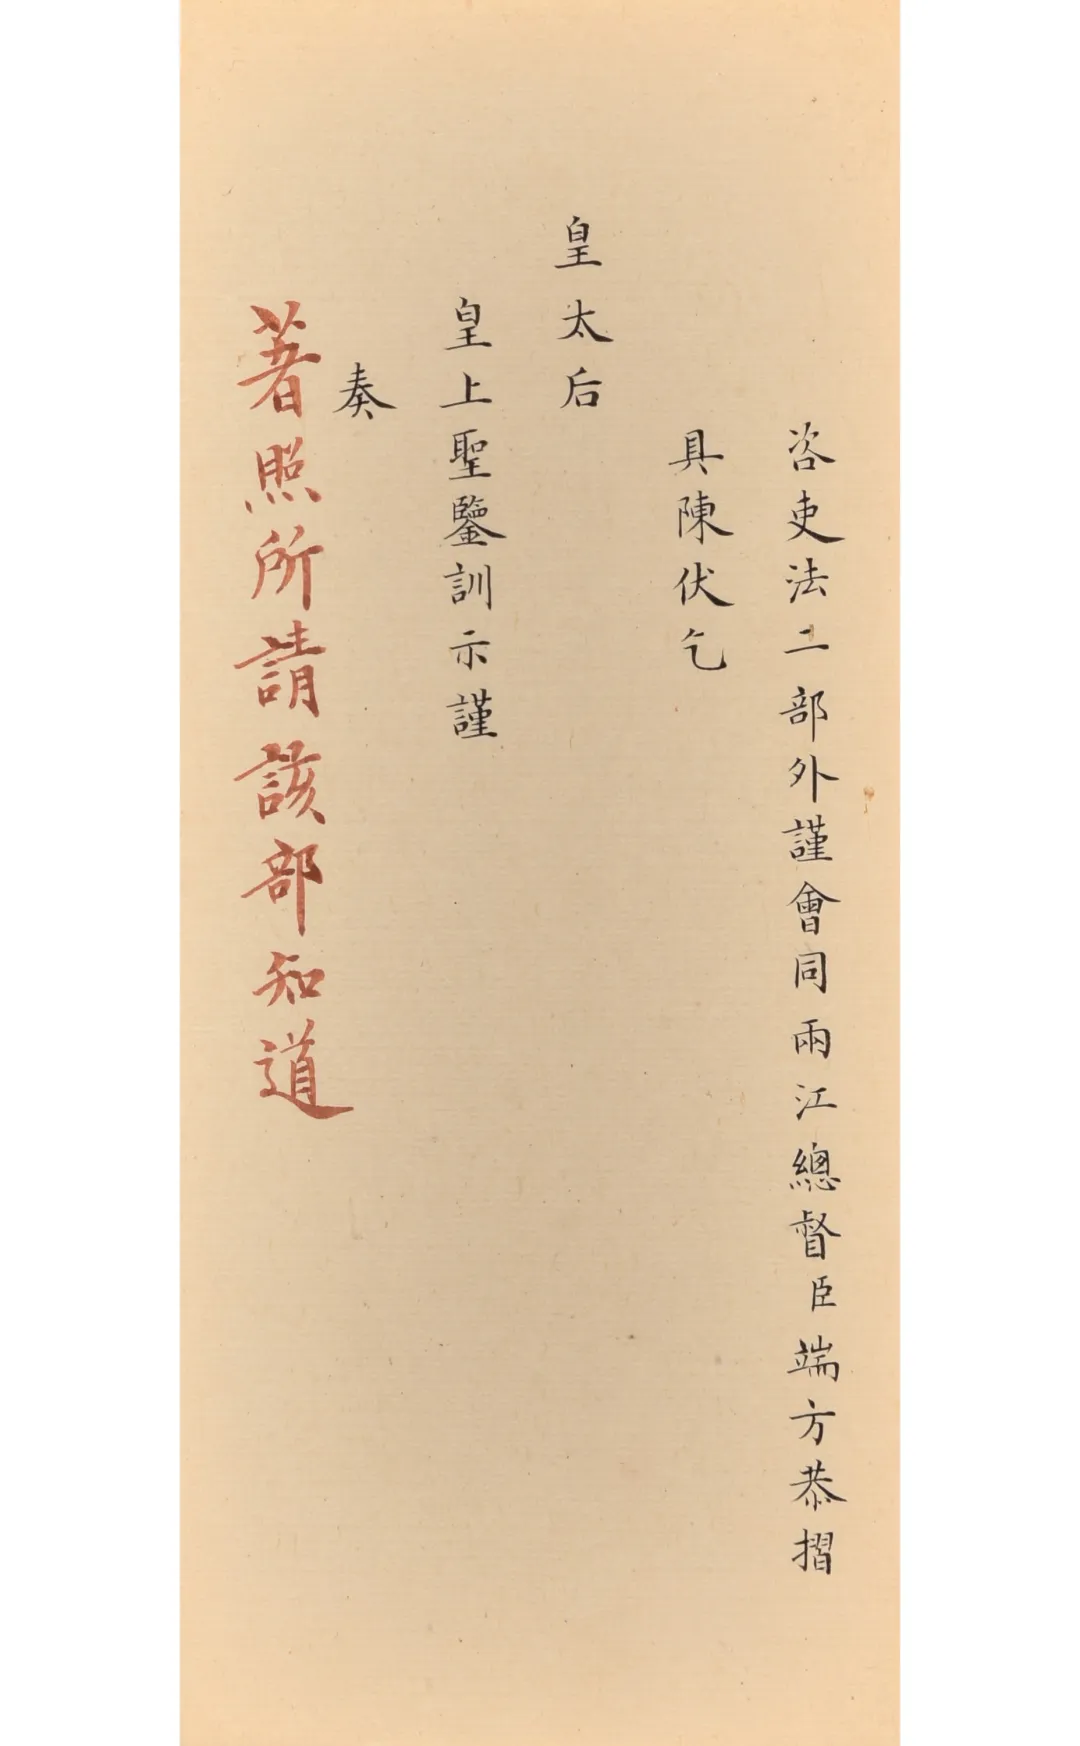 咨吏法二部外謹會同兩江總督臣端方恭摺
具陳伏乞
皇太后
皇上聖鑒訓示謹
奏
著照所請該部知道